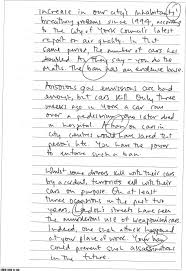 increase in our city's inhabitants'
breathing problems since 1994, according
to the City of York Council latest
report on air quality. In the
same period, the number of cars has
doubled. As they say - you do the
maths. The ban has an evidence base.
Noxious gas emissions are bad
enough, but cars kill. Only three
weeks ago in York, a car
ran over a pedestrian, who later died
in hospital. A ban on cars in
city centres would have saved that
person's life. You have the power
to enforce such a ban.
Whilst some drivers kill with their cars
by accident, terrorists kill with their
cars on purpose. On at least
three occasions in the past two
years, London's streets have seen
the murderous use of weaponised cars.
Indeed, one such attack happened
at your place of work. Your ban
could prevent such assassinations
in the future.